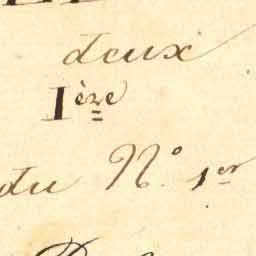 deux
Ière
du N° 1er